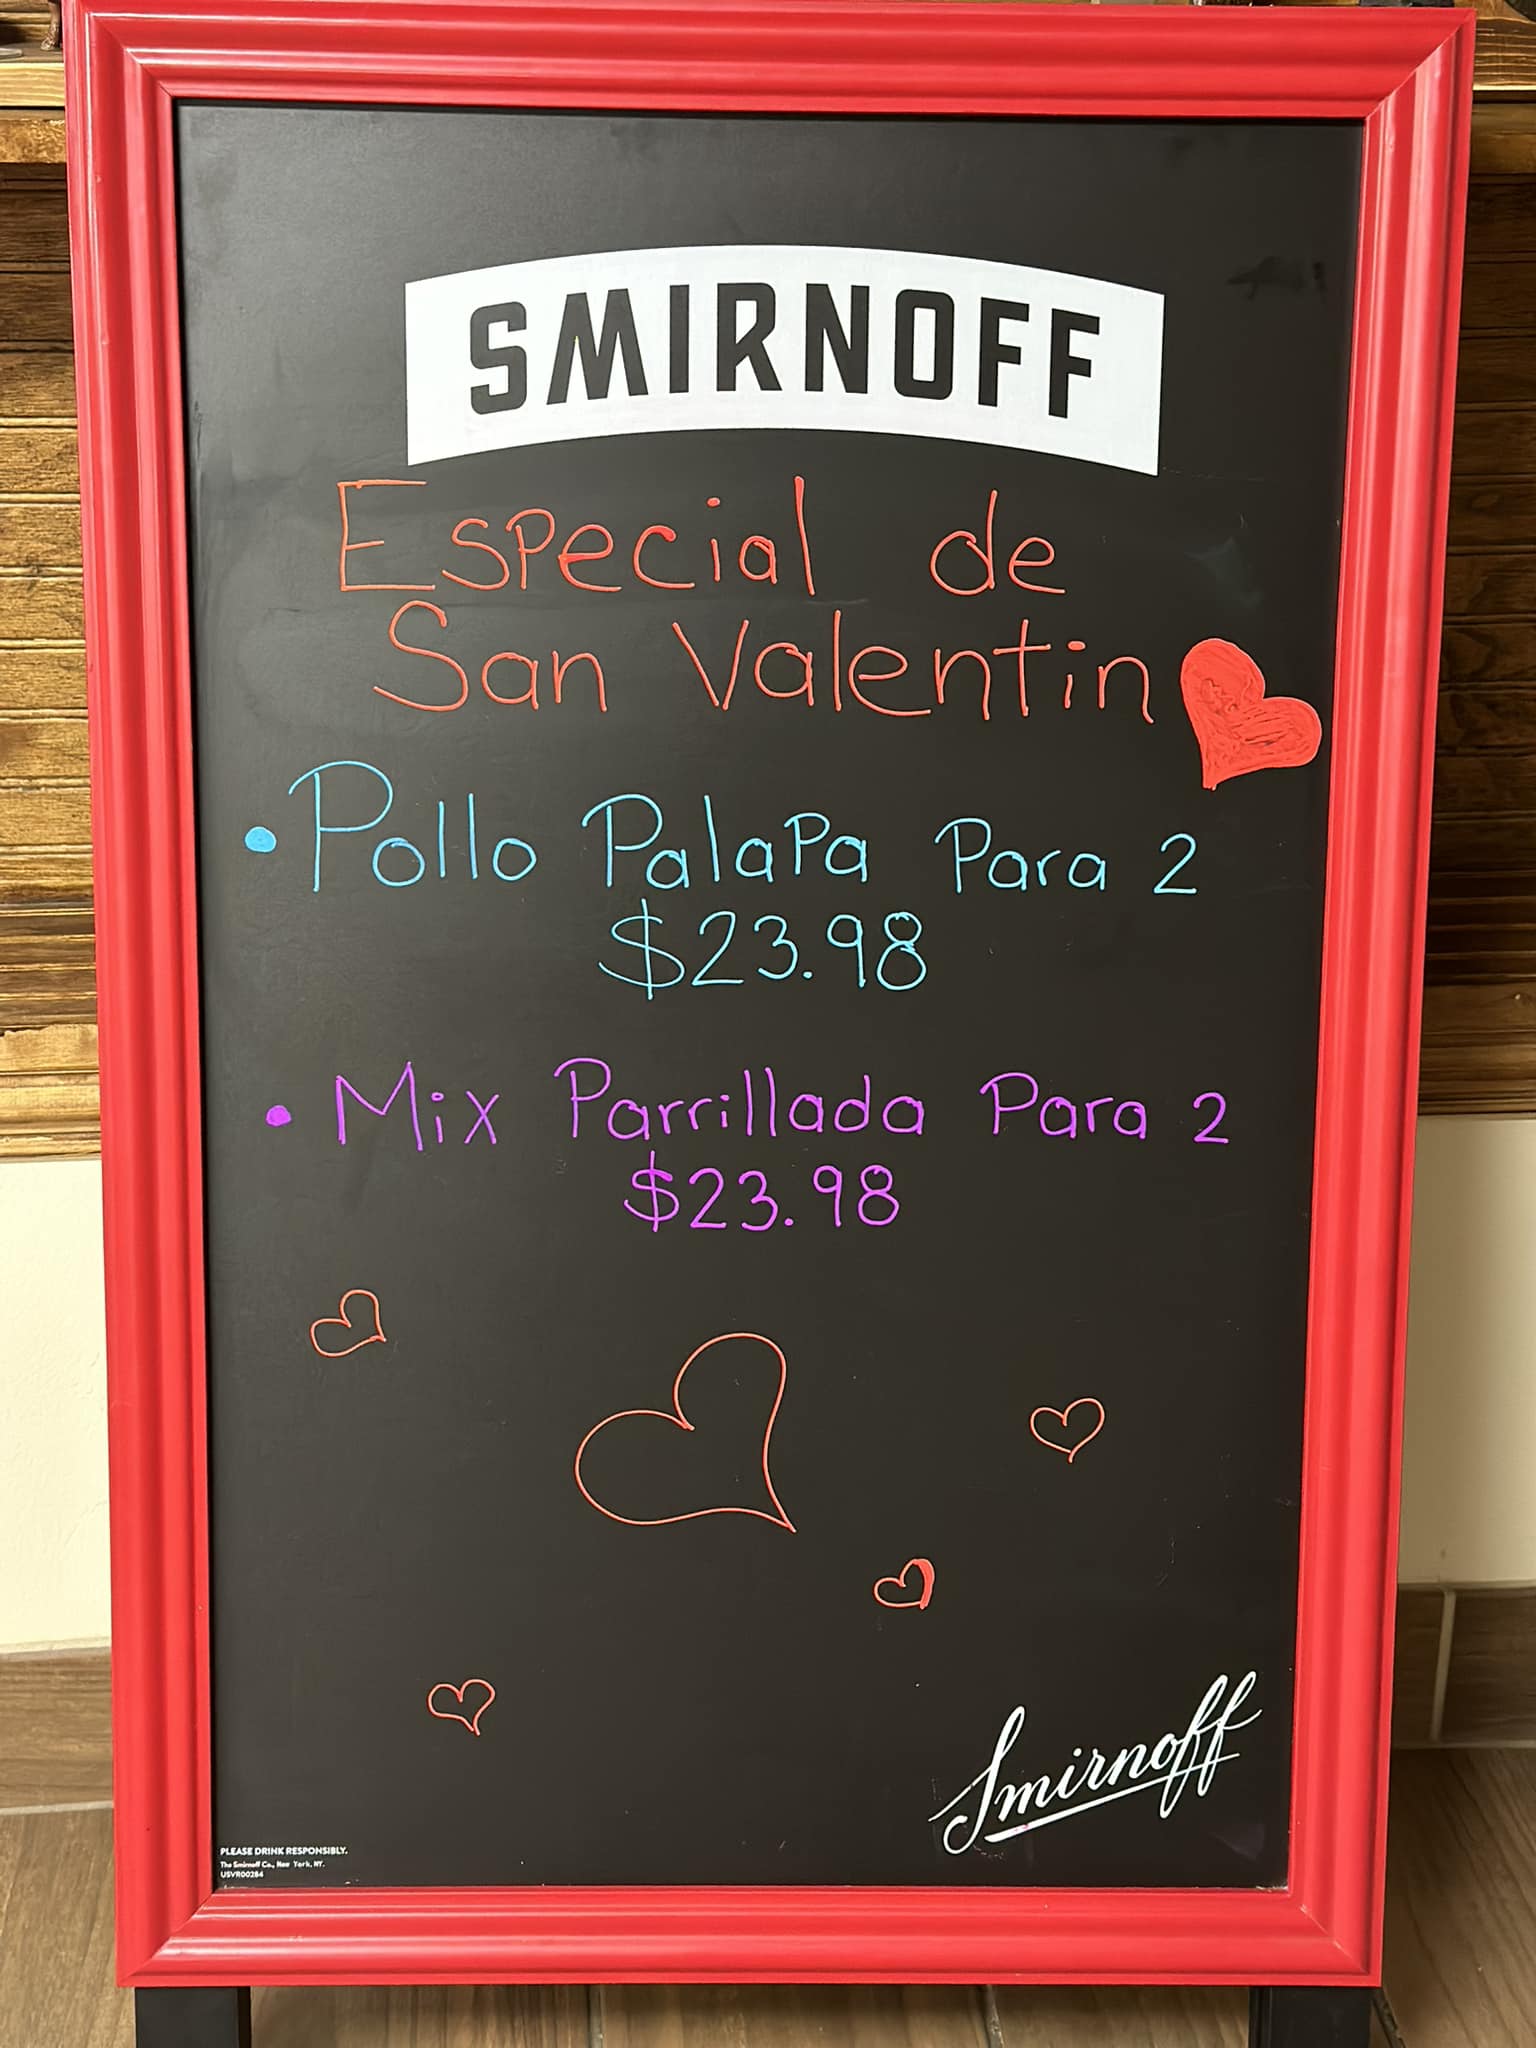 SMIRNOFF
Especial de
San Valentin
• Pollo Palapa Para 2
$23.98
• Mix Parrillada Para 2
$23.98
Smirnoff
PLEASE DRINK RESPONSIBLY.
The Smirnoff Co., New York, NY.
USVR00284